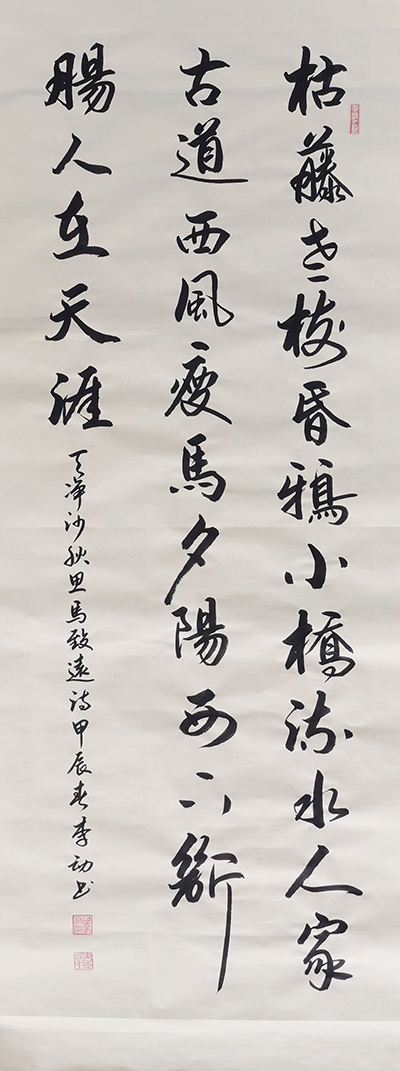 枯藤老树昏鴉小橋流水人家
古道西風瘦馬夕陽西下斷
腸人在天涯
天净沙秋思馬致遠诗甲辰春李书